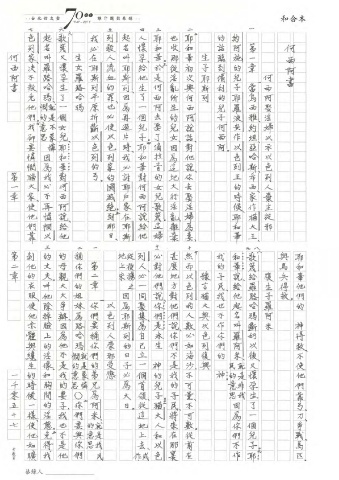 和合本
70
何西阿書
何西阿娶淫婦以示以色列人棄主從邪
第一章 當烏西雅約坦亞哈斯希西家作猶大王
約阿施的兒子耶羅波安作以色列王的時候耶和華
的話臨到備利的兒子何西阿
生子耶斯列
耶和華初次與何西阿說話對他說你去娶淫婦為妻
也收那從淫亂所生的兒女因為這地大行淫亂離棄
耶和華於是何西阿去娶了滴拉音的女兒歌篾這婦
人懷孕給他生了一個兒子耶和華對何西阿說給他
起名叫耶斯列因為再過片時我必討耶戶家在耶斯
列殺人流血的罪也必使以色列家的國滅絕到那日
我必在耶斯列平原折斷以色列的弓
生女羅路哈瑪
歌篾又懷孕生了一個女兒耶和華對何西阿說給他
起名叫羅路哈瑪就是不蒙憐憫的意思因為我必不再憐憫以
色列家決不赦免他們我卻要憐憫猶大家使他們靠
何西阿書 第一章
耶和華他們的 神得救不使他們靠弓刀爭戰馬匹
與馬兵得救
復生子羅阿米
歌篾給羅路哈瑪斷奶以後又懷孕生了一個兒子耶
和華說給他起名叫羅阿米就是非我民的意思因為你們不作
我的子民我也不作你們的 神
預言猶大與以色列復興
然而以色列的人數必如海沙不可量不可數從前在
甚麼地方對他們說你們不是我的子民將來在那裏
必對他們說你們是永生 神的兒子猶大人和以色
列人必一同聚集為自己立一個首領從這地上去或作
從被擄之地上來因為耶斯列的日子必為大日
以色列人棄邪受懲
第二章 你們要稱你們的弟兄為阿米就是我民的意思
稱你們的姊妹為路哈瑪就是蒙憐憫的意思○你們要與你們
的母親大大爭辯因為他不是我的妻子我也不是他
的丈夫叫他除掉臉上的淫像和胸間的淫態免得我
剝他的衣服使他赤體與纔生的時候一樣使他如曠
第二章 一千零五十七